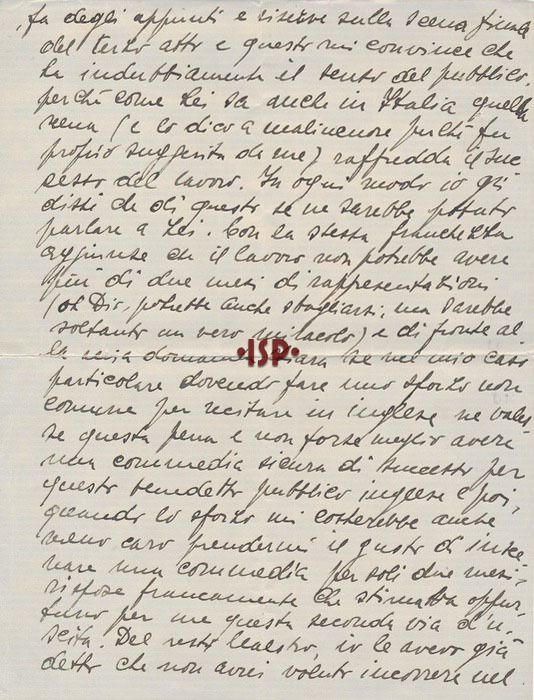 fa degli appunti e riserve sulla scena finale
del terzo atto e questo mi convince che
ha indubbiamente il senso del pubblico,
perché come Lei sa anche in Italia quella
scena (e lo dico a malincuore perché fu
proprio suggerita da me) raffredda il suc
cesso del lavoro. In ogni modo io già
dissi che di questo se ne sarebbe potuto
parlare a Lei. Con la stessa franchezza
aggiunse che il lavoro non potrebbe avere
più di due mesi di rappresentazioni
(oh Dio, potrebbe anche sbagliarsi, ma sarebbe
soltanto un vero miracolo) e di fronte al
la mia domanda chiara se nel mio caso
·ISP·
particolare dovendo fare uno sforzo non
comune per recitare in inglese ne vales
se questa pena e non forse meglio avere
una commedia sicura di successo per
questo benedetto pubblico inglese e poi,
quando lo sforzo mi costerebbe anche
meno caro prendermi il gusto di insce
nare una commedia per soli due mesi,
rispose francamente che stimava oppor
tuno per me questa seconda via d'u
scita. Del resto Maestro, io le avevo già
detto che non avrei voluto incorrere nel